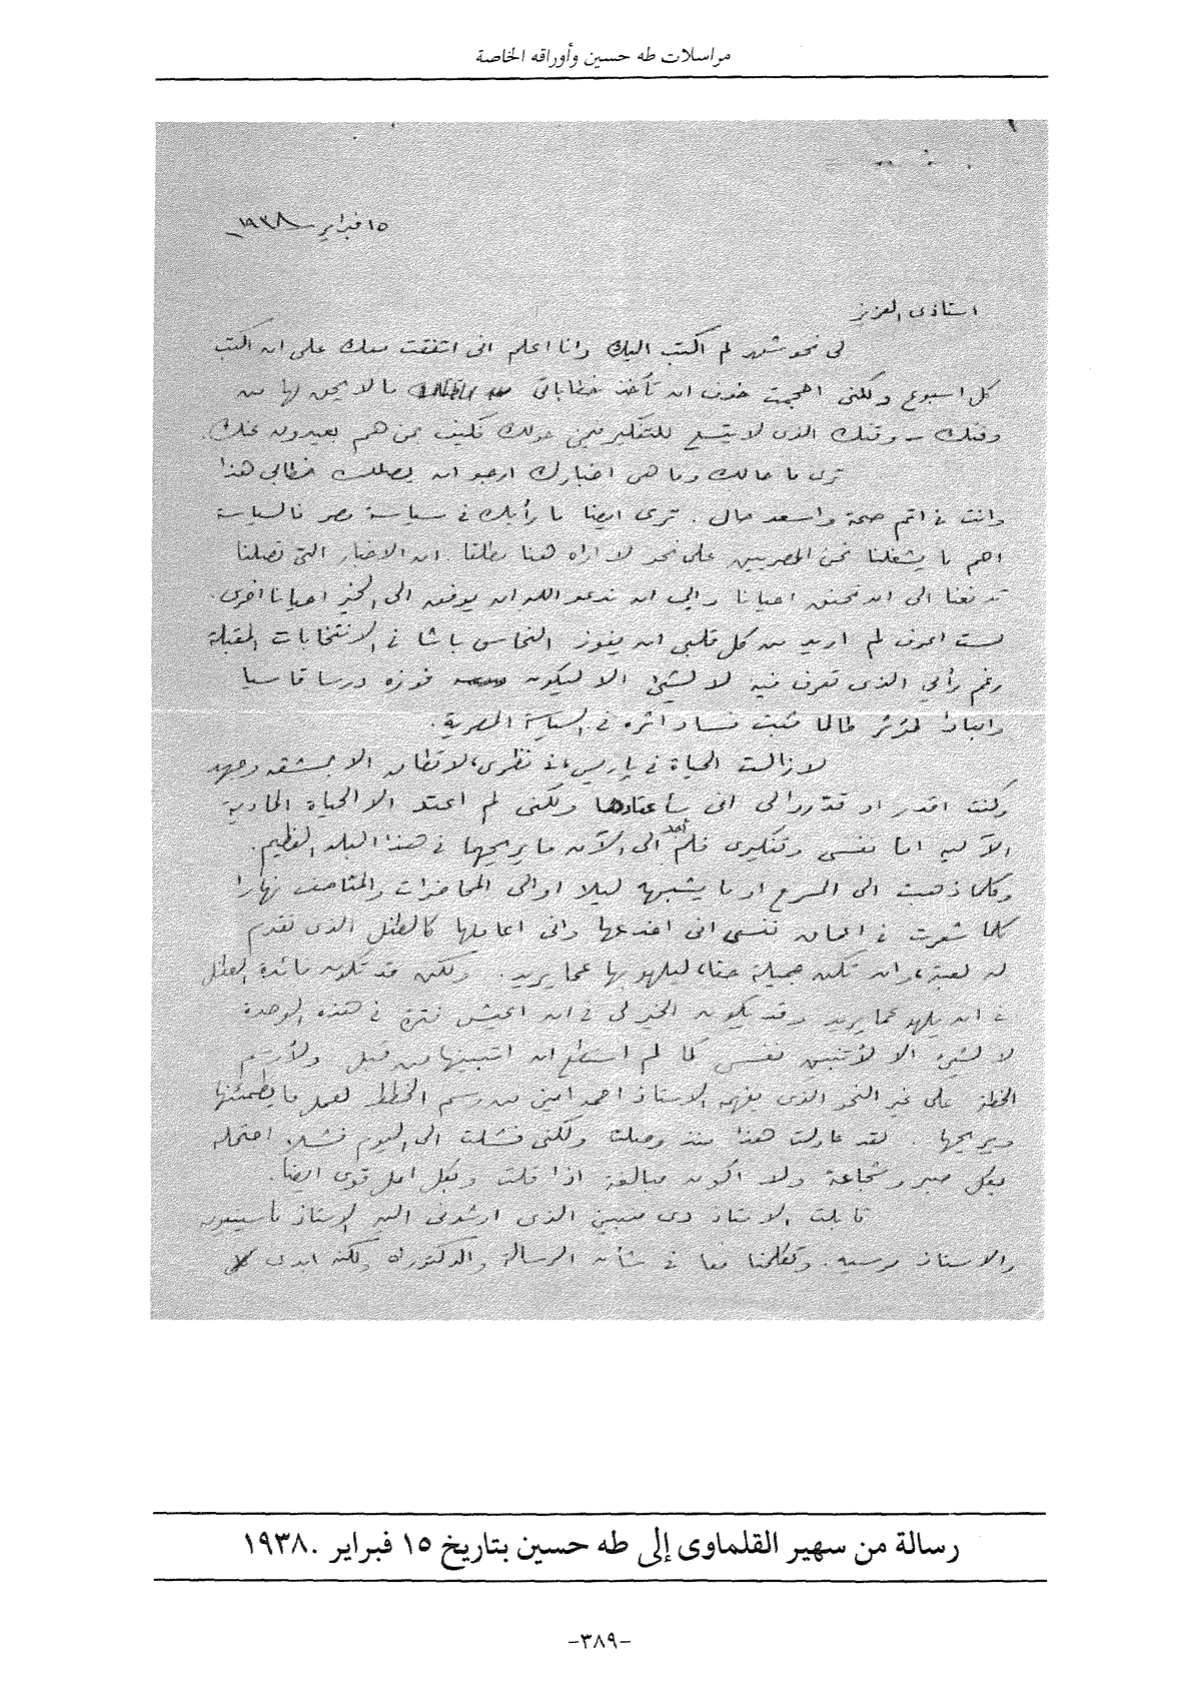 مراسلات طه حسين وأوراقه الخاصة
١٥ فبراير ١٩٣٨
استاذى العزيز
لى نحو شهر لم اكتب اليك وانا اعلم انى اتفقت معك على ان اكتب
كل اسبوع ولكنى احجمت خوف ان تأخذ خطاباتى من مالا يحق لها من
وقتك ــ وقتك الذى لا يتسع للتفكير فيمن حولك فكيف بمن هم بعيدون عنك.
ترى ما حالك وما هى اخبارك ارجو ان يصلك خطابى هذا
وانت فى اتم صحة واسعد حال . ترى ايضا ما رأيك فى سياسة مصر فالسياسة
اهم ما يشغلنا نحن المصريين على نحو لا اراه هنا مطلقا ان الاخبار التى تصلنا
تدفعنا الى ان نحنق احيانا والى ان ندعو الله ان يوفق الى الخير احيانا اخرى.
لست اعرف لم اريد من كل قلبى ان يفوز النحاس باشا فى الانتخابات المقبلة
رغم رأيى الذى تعرف فيه لا لشئ الا ليكون فوزه درسا قاسيا
لمؤثر طالما فسادا اثره فى السياسة المصرية.
لا زالت الحياة فى باريس، فى نظرى، لا تطاق الا بمشقه وجهد
وكنت اقدر او قدروا لى انى سأعتادها ولكنى لم اعتد الا الحياة المادية
الآلية اما نفسى وتفكيرى فلم اجد الى الآن ما يريحها فى هذا البلد العظيم.
وكلما ذهبت الى المسرح او ما يشبهه ليلا او الى المحاضرات والمتاحف نهارا
كلما شعرت فى اعماق نفسى انى اخدعها وانى اعاملها كالطفل الذى نقدم
له لعبة، وان تكن جميلة حقا، ليلهو بها عما يريد. ولكن قد تكون فائدة الطفل
فى ان يلهو عما يريد وقد يكون الخير لى فى ان اعيش فترة فى هذه الوحدة
لا لشئ الا لأتبين نفسى كما لم استطع ان اتبينها من قبل ولأرسم
الخطة على غير النحو الذى يفهمه الاستاذ احمد امين من رسم الخطط لعمل ما يطمئنها
ويريحها . لقد حاولت هذا منذ وصلت ولكنى فشلت الى اليوم فشلا احتمله
بكل صبر وشجاعة ولا اكون مبالغة اذا قلت وبكل امل قوى ايضا.
قابلت الاستاذ دى مبين الذى ارشدنى اليه الاستاذ ماسينيون
والاستاذ مرسيه. وتكلمنا معا فى شأن الرسالة والدكتوراه ولكنه ابدى
رسالة من سهير القلماوى إلى طه حسين بتاريخ ١٥ فبراير ١٩٣٨.
-٣٨٩-